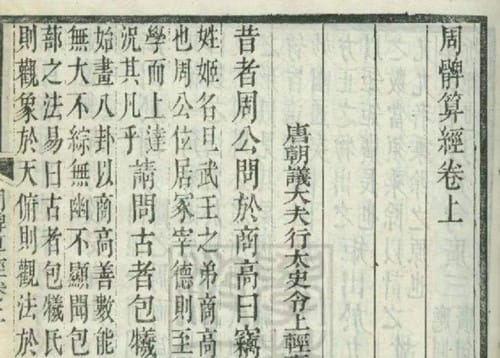 周髀算經卷上
唐朝議大夫行太史令上輕車
昔者周公問於商高曰竊
姓姬名旦武王之弟商高
也周公位居冢宰德則至
學而上達
況其凡乎請問古者包犧
始畫八卦以商高善數能
無大不綜無幽不顯聞包
蔀之法易曰古者包犧氏
則觀象於天俯則觀法於